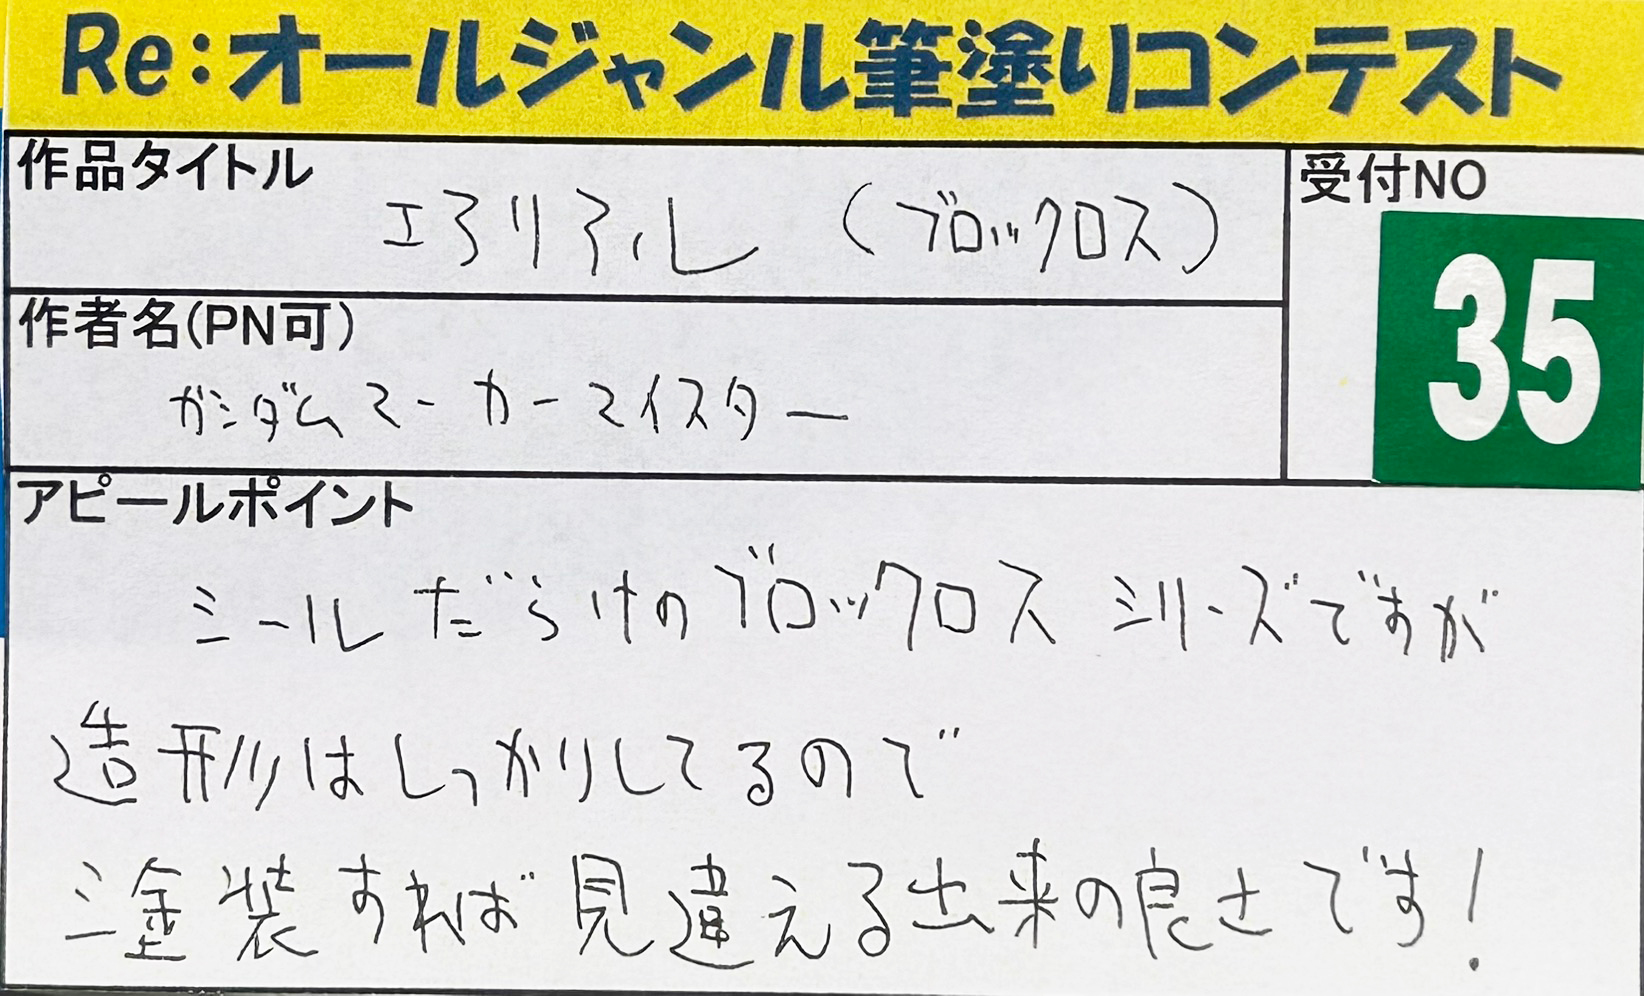 Re:オールジャンル筆塗りコンテスト
作品タイトル
エアリアル (ブロックロス)
受付NO
35
作者名(PN可)
ガンダムマーカーマイスター
アピールポイント
シールだらけのブロックロスシリーズですが
造形はしっかりしてるので
塗装すれば見違える出来の良さです!